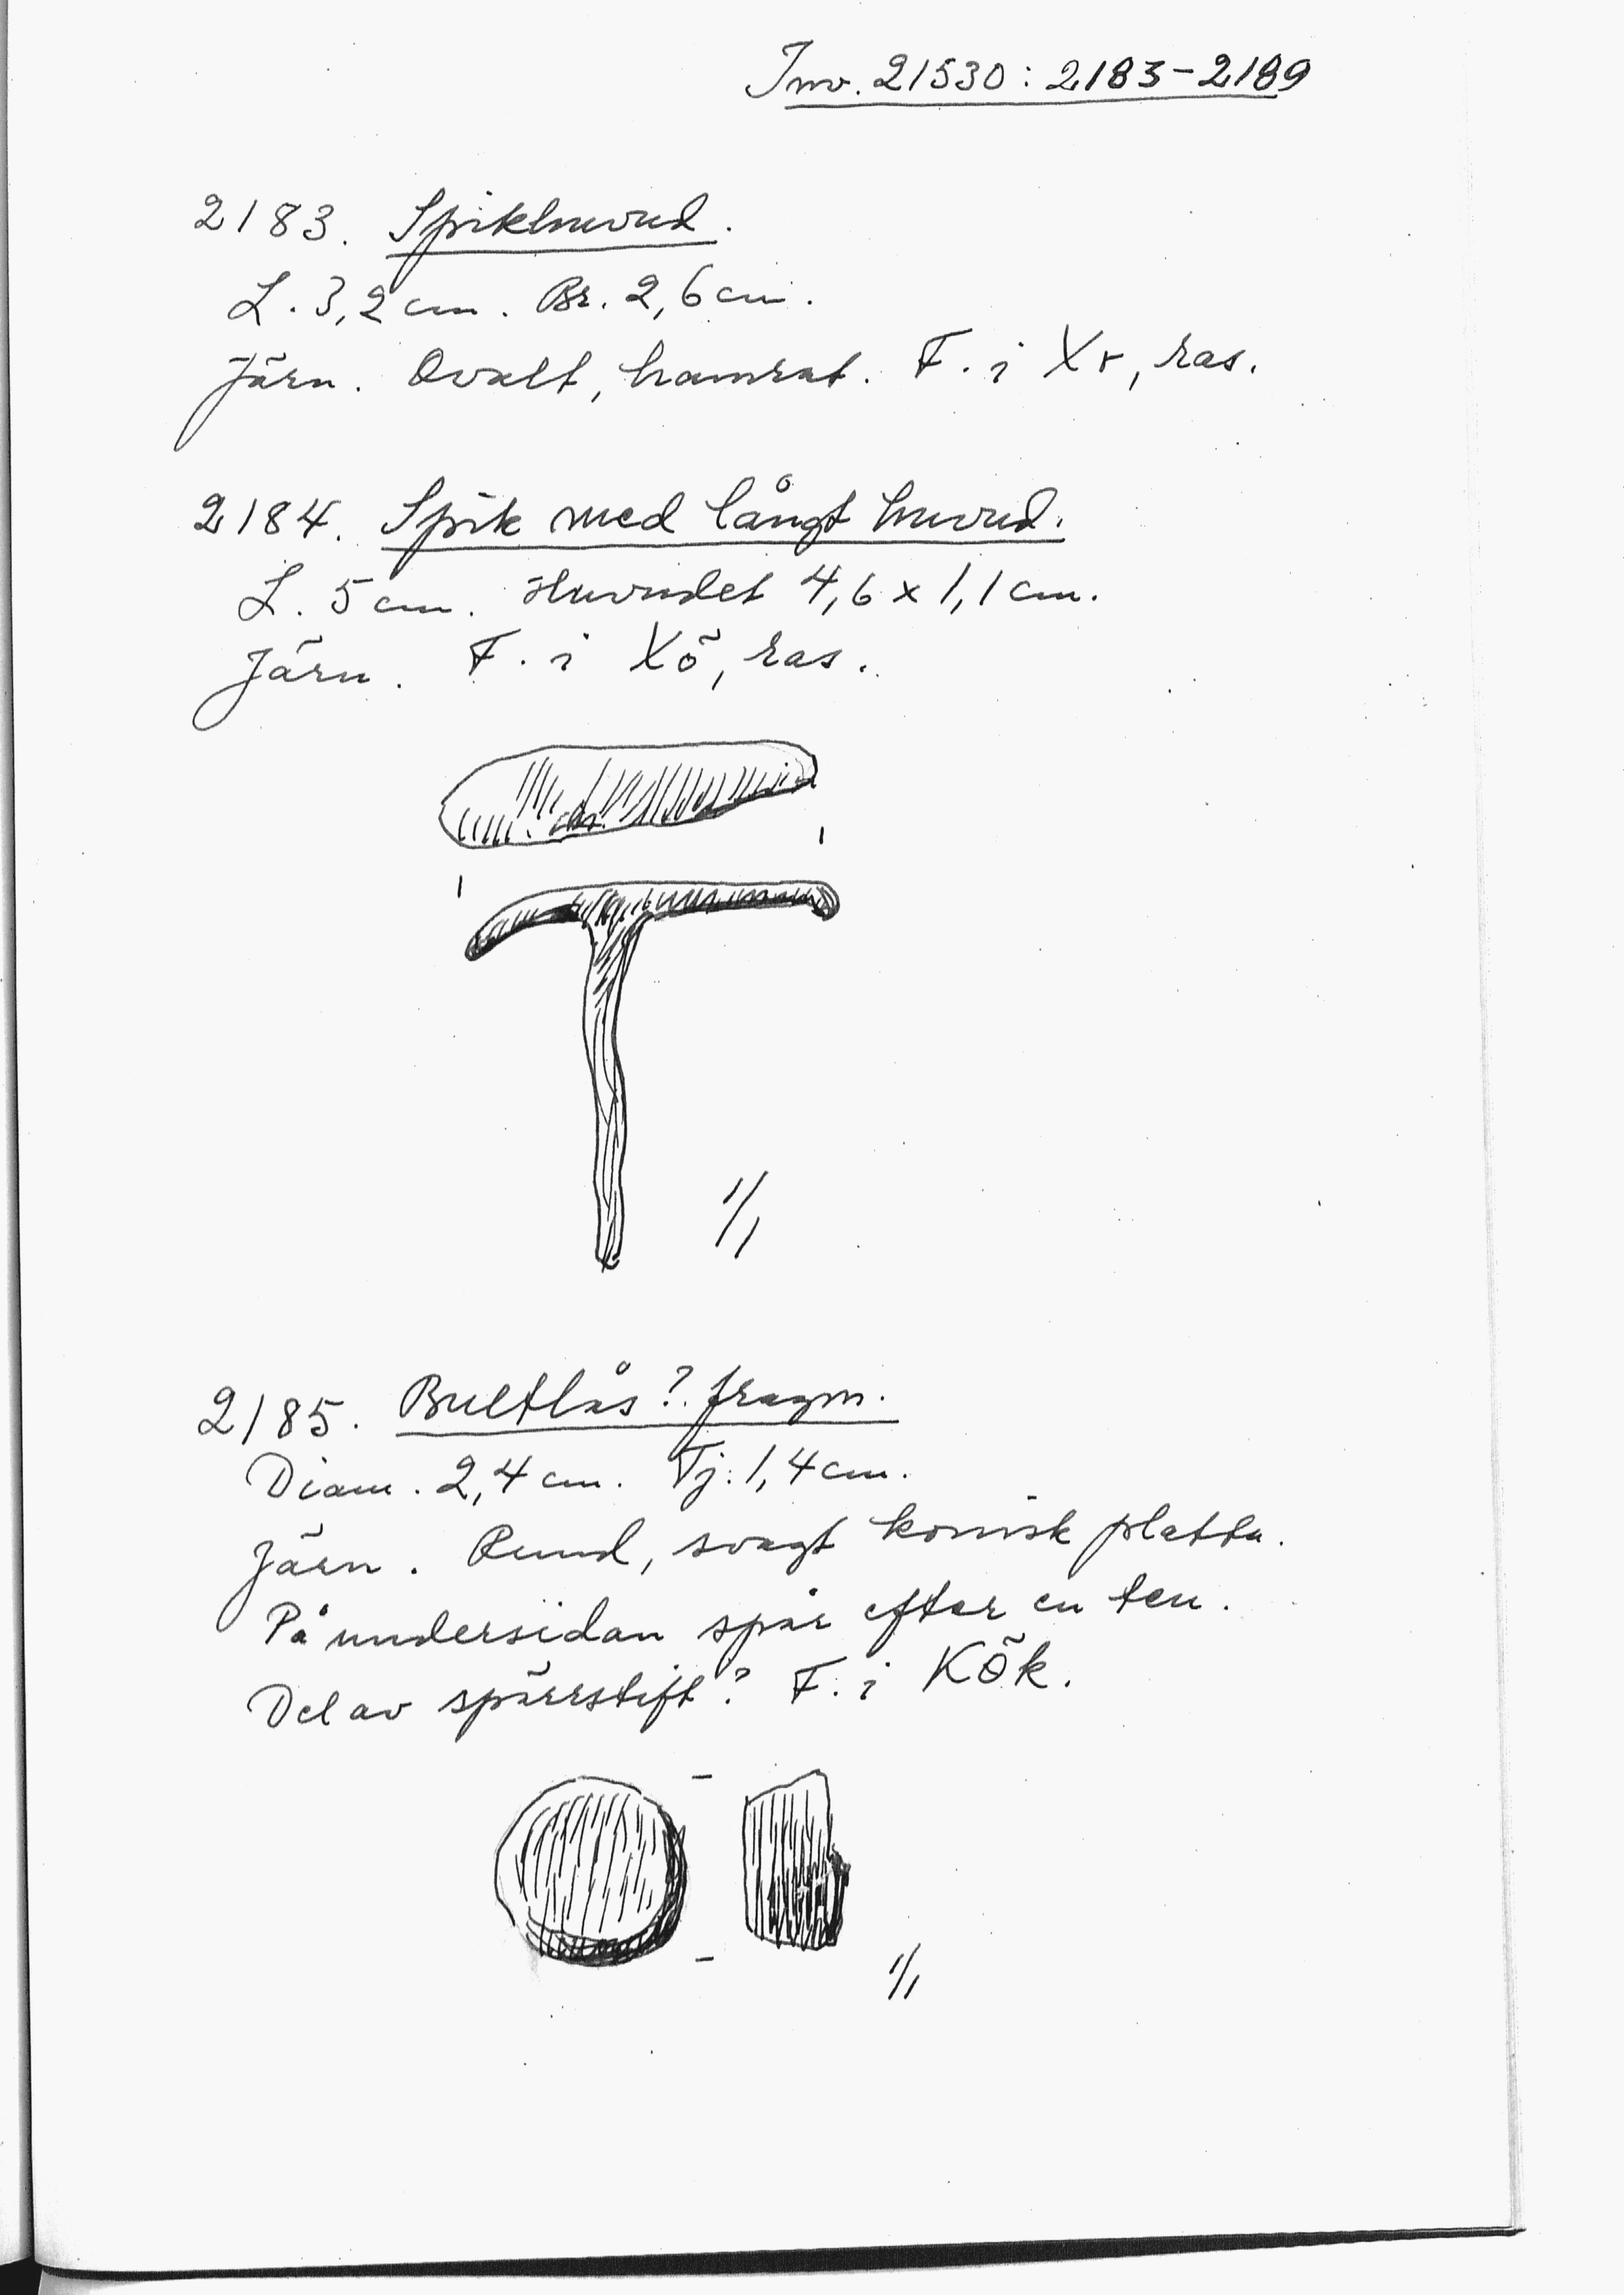 Inv. 21530:2183-2189
2183. Spikhuvud.
L. 3,2 cm. Br. 2,6 cm.
Järn. Ovalt, hamrat. F. i Xv, ras.
2184. Spik med långt huvud.
L. 5 cm. Huvudet 4,6 x 1,1 cm.
Järn. F. i Xö, ras.
1/1
2185. Bultlås? fragm.
Diam. 2,4 cm. Tj. 1,4 cm.
Järn. Rund, svagt konisk platta.
På undersidan spår efter en ten.
Del av spärrstift? F. i Kök.
1/1